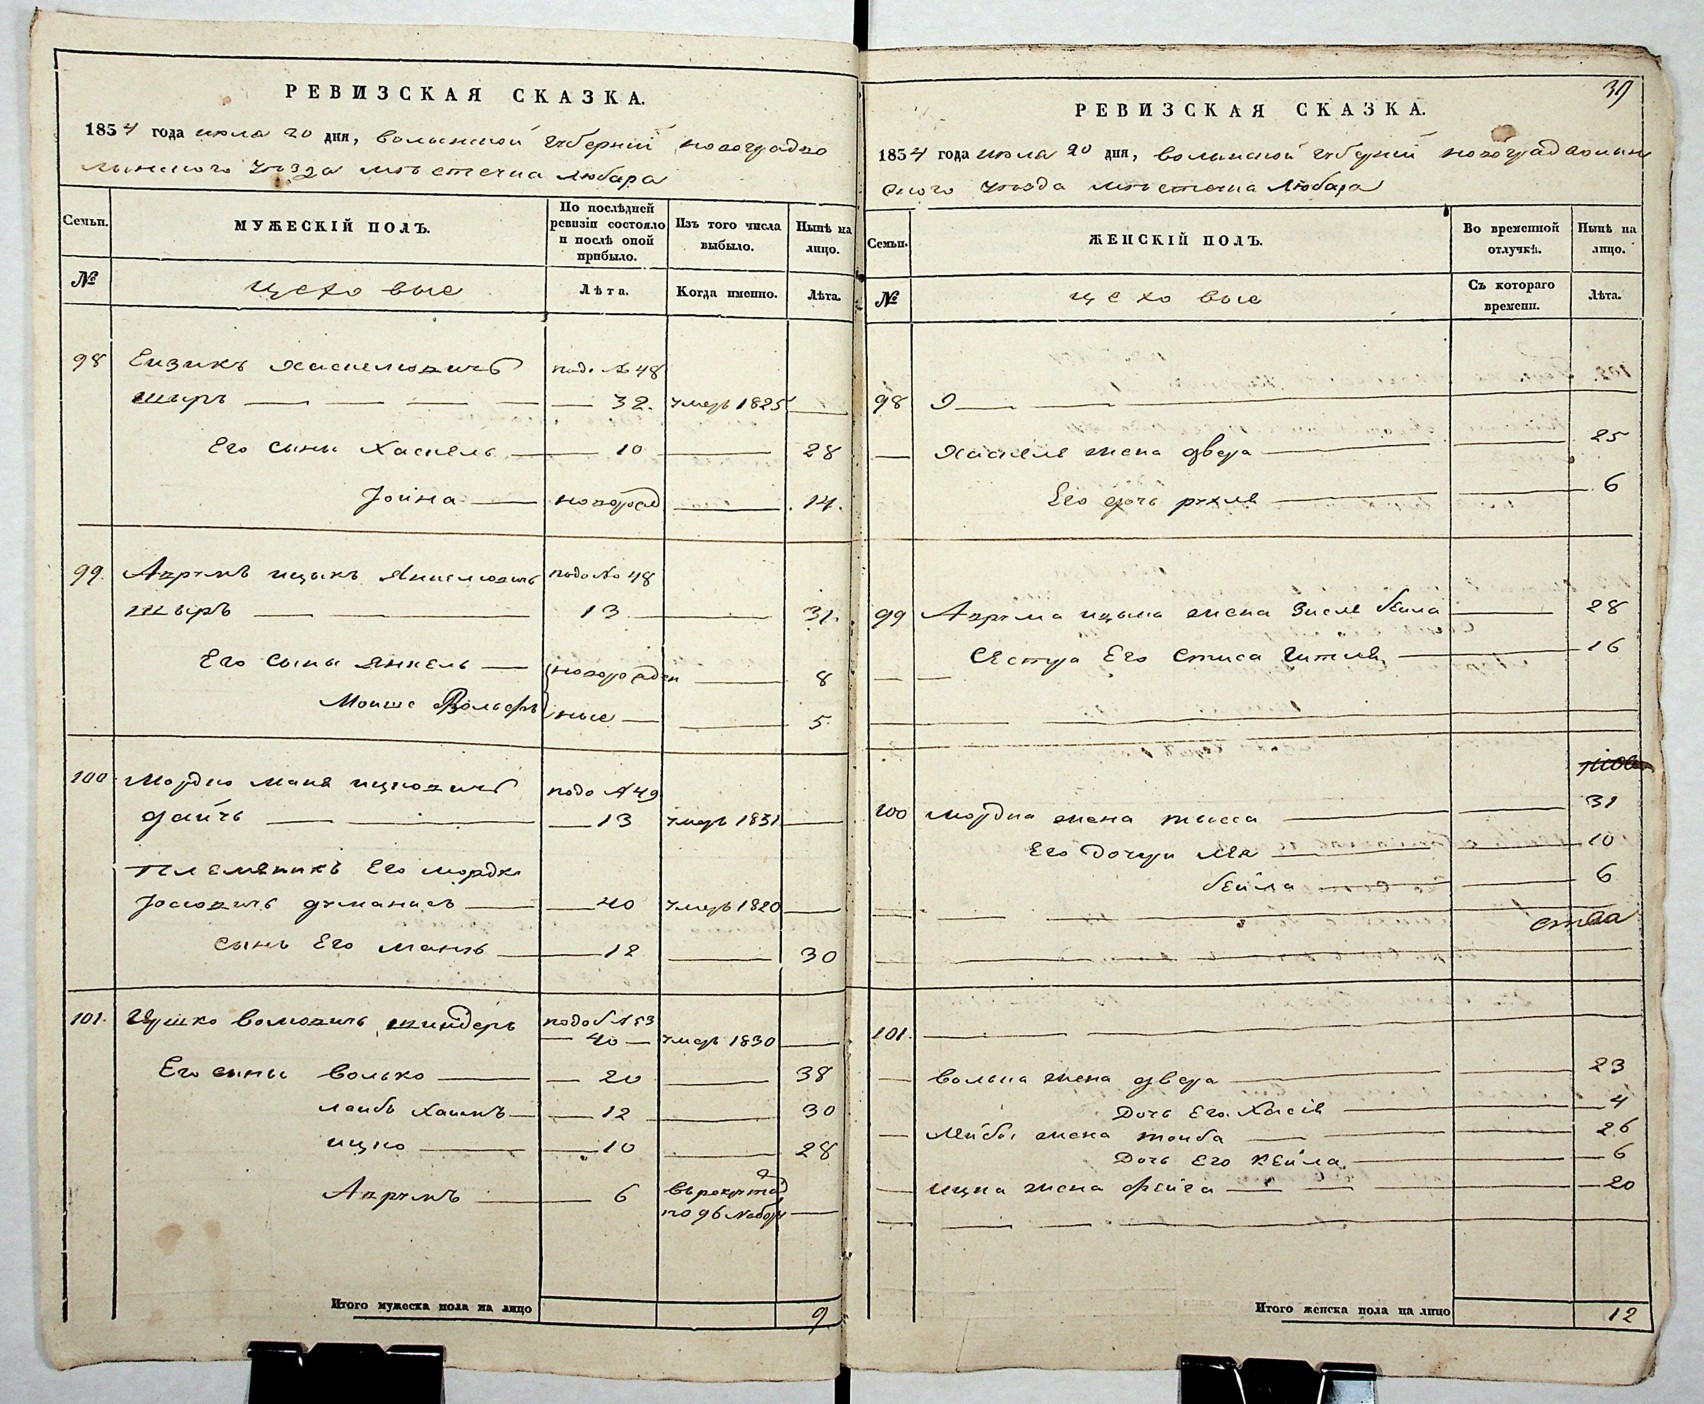 РЕВИЗСКАЯ СКАЗКА.
1854 года июля 20 дня, волынской губернiй новоградво
лынского уезда мъстечка Любара
Семьи.
МУЖЕСКІЙ ПОЛЪ.
По послѣдней ревизіи состояло и послѣ оной прибыло.
Изъ того числа выбыло.
Нынѣ на лицо.
№
цеховые
Лѣта.
Когда именно.
Лѣта.
98 Еизикъ Хаскелювичъ подъ № 48
шыръ 32. умеръ 1825
Его сыны Хаскель 10 28
Јоина новорожд 14.
99. Аврумъ ицыкъ Янкелювичъ подъ № 48
шыръ 13 31.
Его сыны Янкель новорожден 8
Моише Вольфъ ные 5
100 Мордко маня ицковичъ подъ № 49
дайчъ 13 умеръ 1831
племяникъ Его мордко
Јосювичъ 40 умеръ 1820
сынъ Его 12 30
101. Ицко волювичъ шиндеръ подъ № 53
40 умеръ 1830
Его сыны волько 20 38
леибъ хаимъ 12 30
ицко 10 28
Аврумъ 6 въ рекруты
по 96 набору
Итого мужеска пола на лицо 9
39
РЕВИЗСКАЯ СКАЗКА.
1854 года июля 20 дня, волынской губернiй новоградволын
ского уъзда мъстечка Любара
Семьи.
ЖЕНСКІЙ ПОЛЪ.
Во временной отлучкѣ.
Нынѣ на лицо.
№
цеховые
Съ котораго времени.
Лѣта.
98
Хаскеля жена двера 25
Его дочь рухля 6
99 Аврума ицыка жена Зисля беила 28
Сестра Его Стиса Гитля 16
100 мордка жена 31
Его дочери лея 10
беила 6
101.
волька жена двера 23
Дочь Его Хася 4
Лейбы жена тоиба 26
Дочь Его Кеила 6
ицка жена феига 20
Итого женска пола на лицо 12